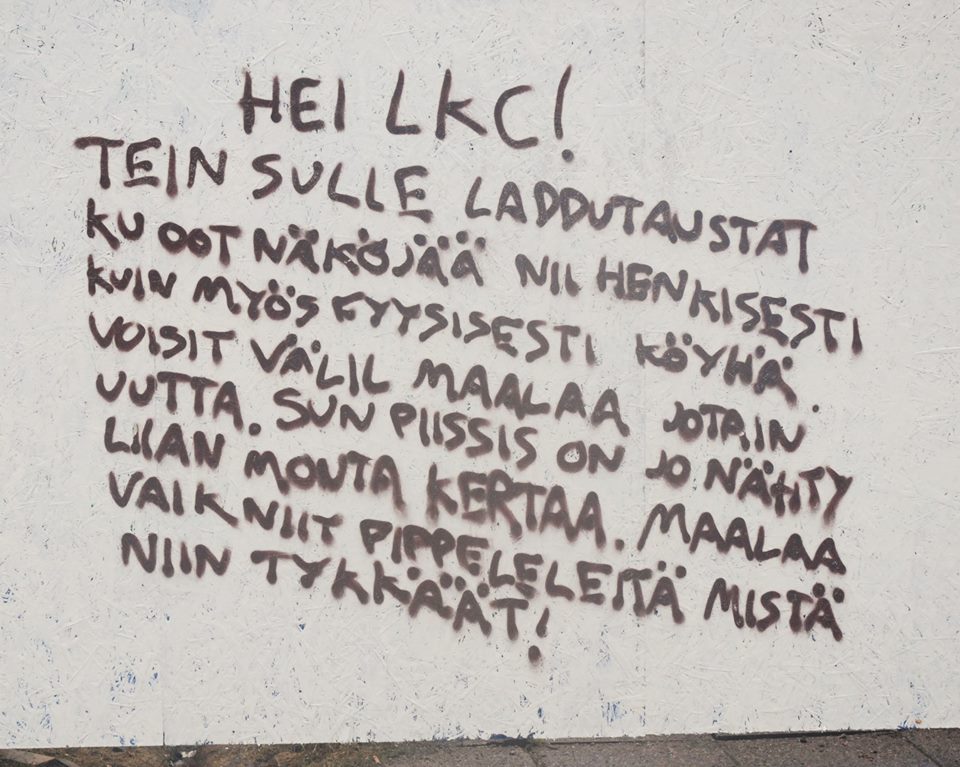 HEI LKC!
TEIN SULLE LADDUTAUSTAT
KU OOT NÄKÖJÄÄ NII HENKISESTI
KUIN MYÖS FYYSISESTI KÖYHÄ.
VOISIT VÄLIL MAALAA JOTAIN
UUTTA. SUN PIISSIS ON JO NÄHTY
LIIAN MONTA KERTAA. MAALAA
VAIK NIIT PIPPELELEITÄ MISTÄ
NIIN TYKKÄÄT!